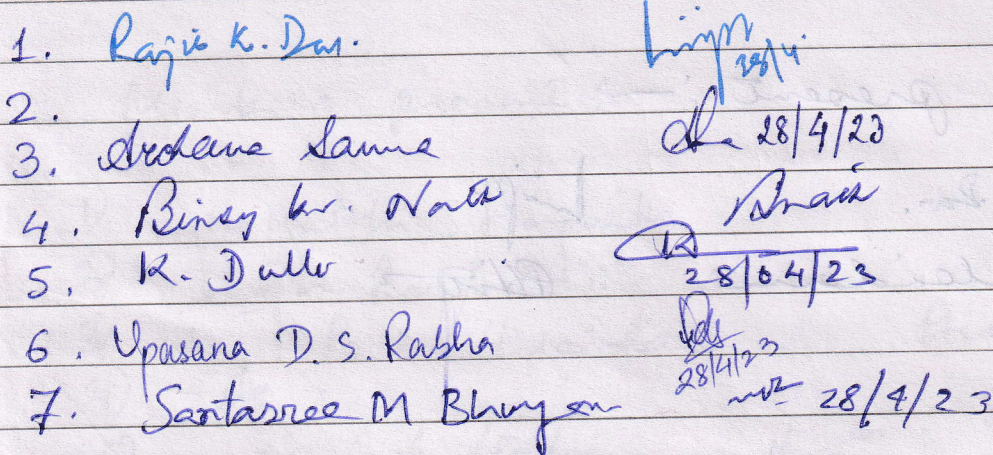 1. Rajib K. Das. 28/4
2.
3. Archana Sarma 28/4/23
4. Binoy kr. Nath
5. K. Dullu 28/04/23
6. Upasana D. S. Rabha 28/4/23
7. Santasree M Bhuyan 28/4/23
present